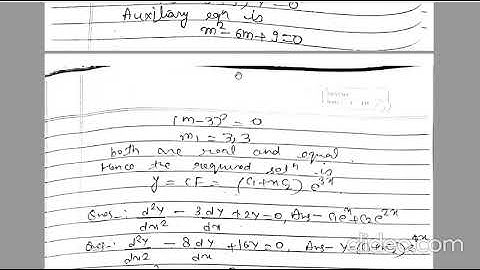 Auxiliary eqn is
m² - 6m + 9 = 0
(m-3)² = 0
m₁ = 3, 3
both are real and equal.
Hence the required solⁿ is
y = CF = (C₁ + xC₂) e³ˣ
Ques-: d²y/dx² - 3dy/dx + 2y = 0, Ans - C₁eˣ + C₂e²ˣ
Ques-: d²y/dx² - 8dy/dx + 16y = 0, Ans - y